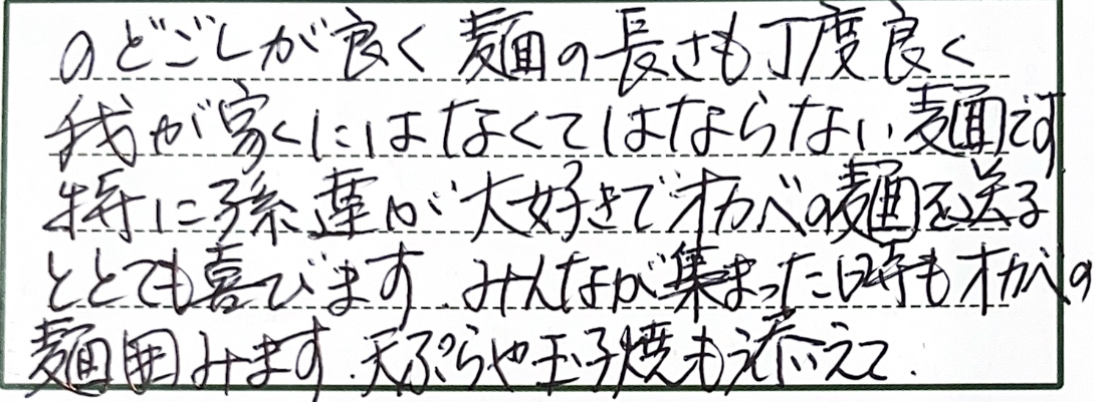 のどごしが良く 麺の長さも丁度良く
我が家にはなくてはならない麺です
特に孫達が大好きでオカベの麺を送る
ととても喜びます.みんなが集まった時もオカベの
麺囲みます.天ぷらや玉子焼も添えて.